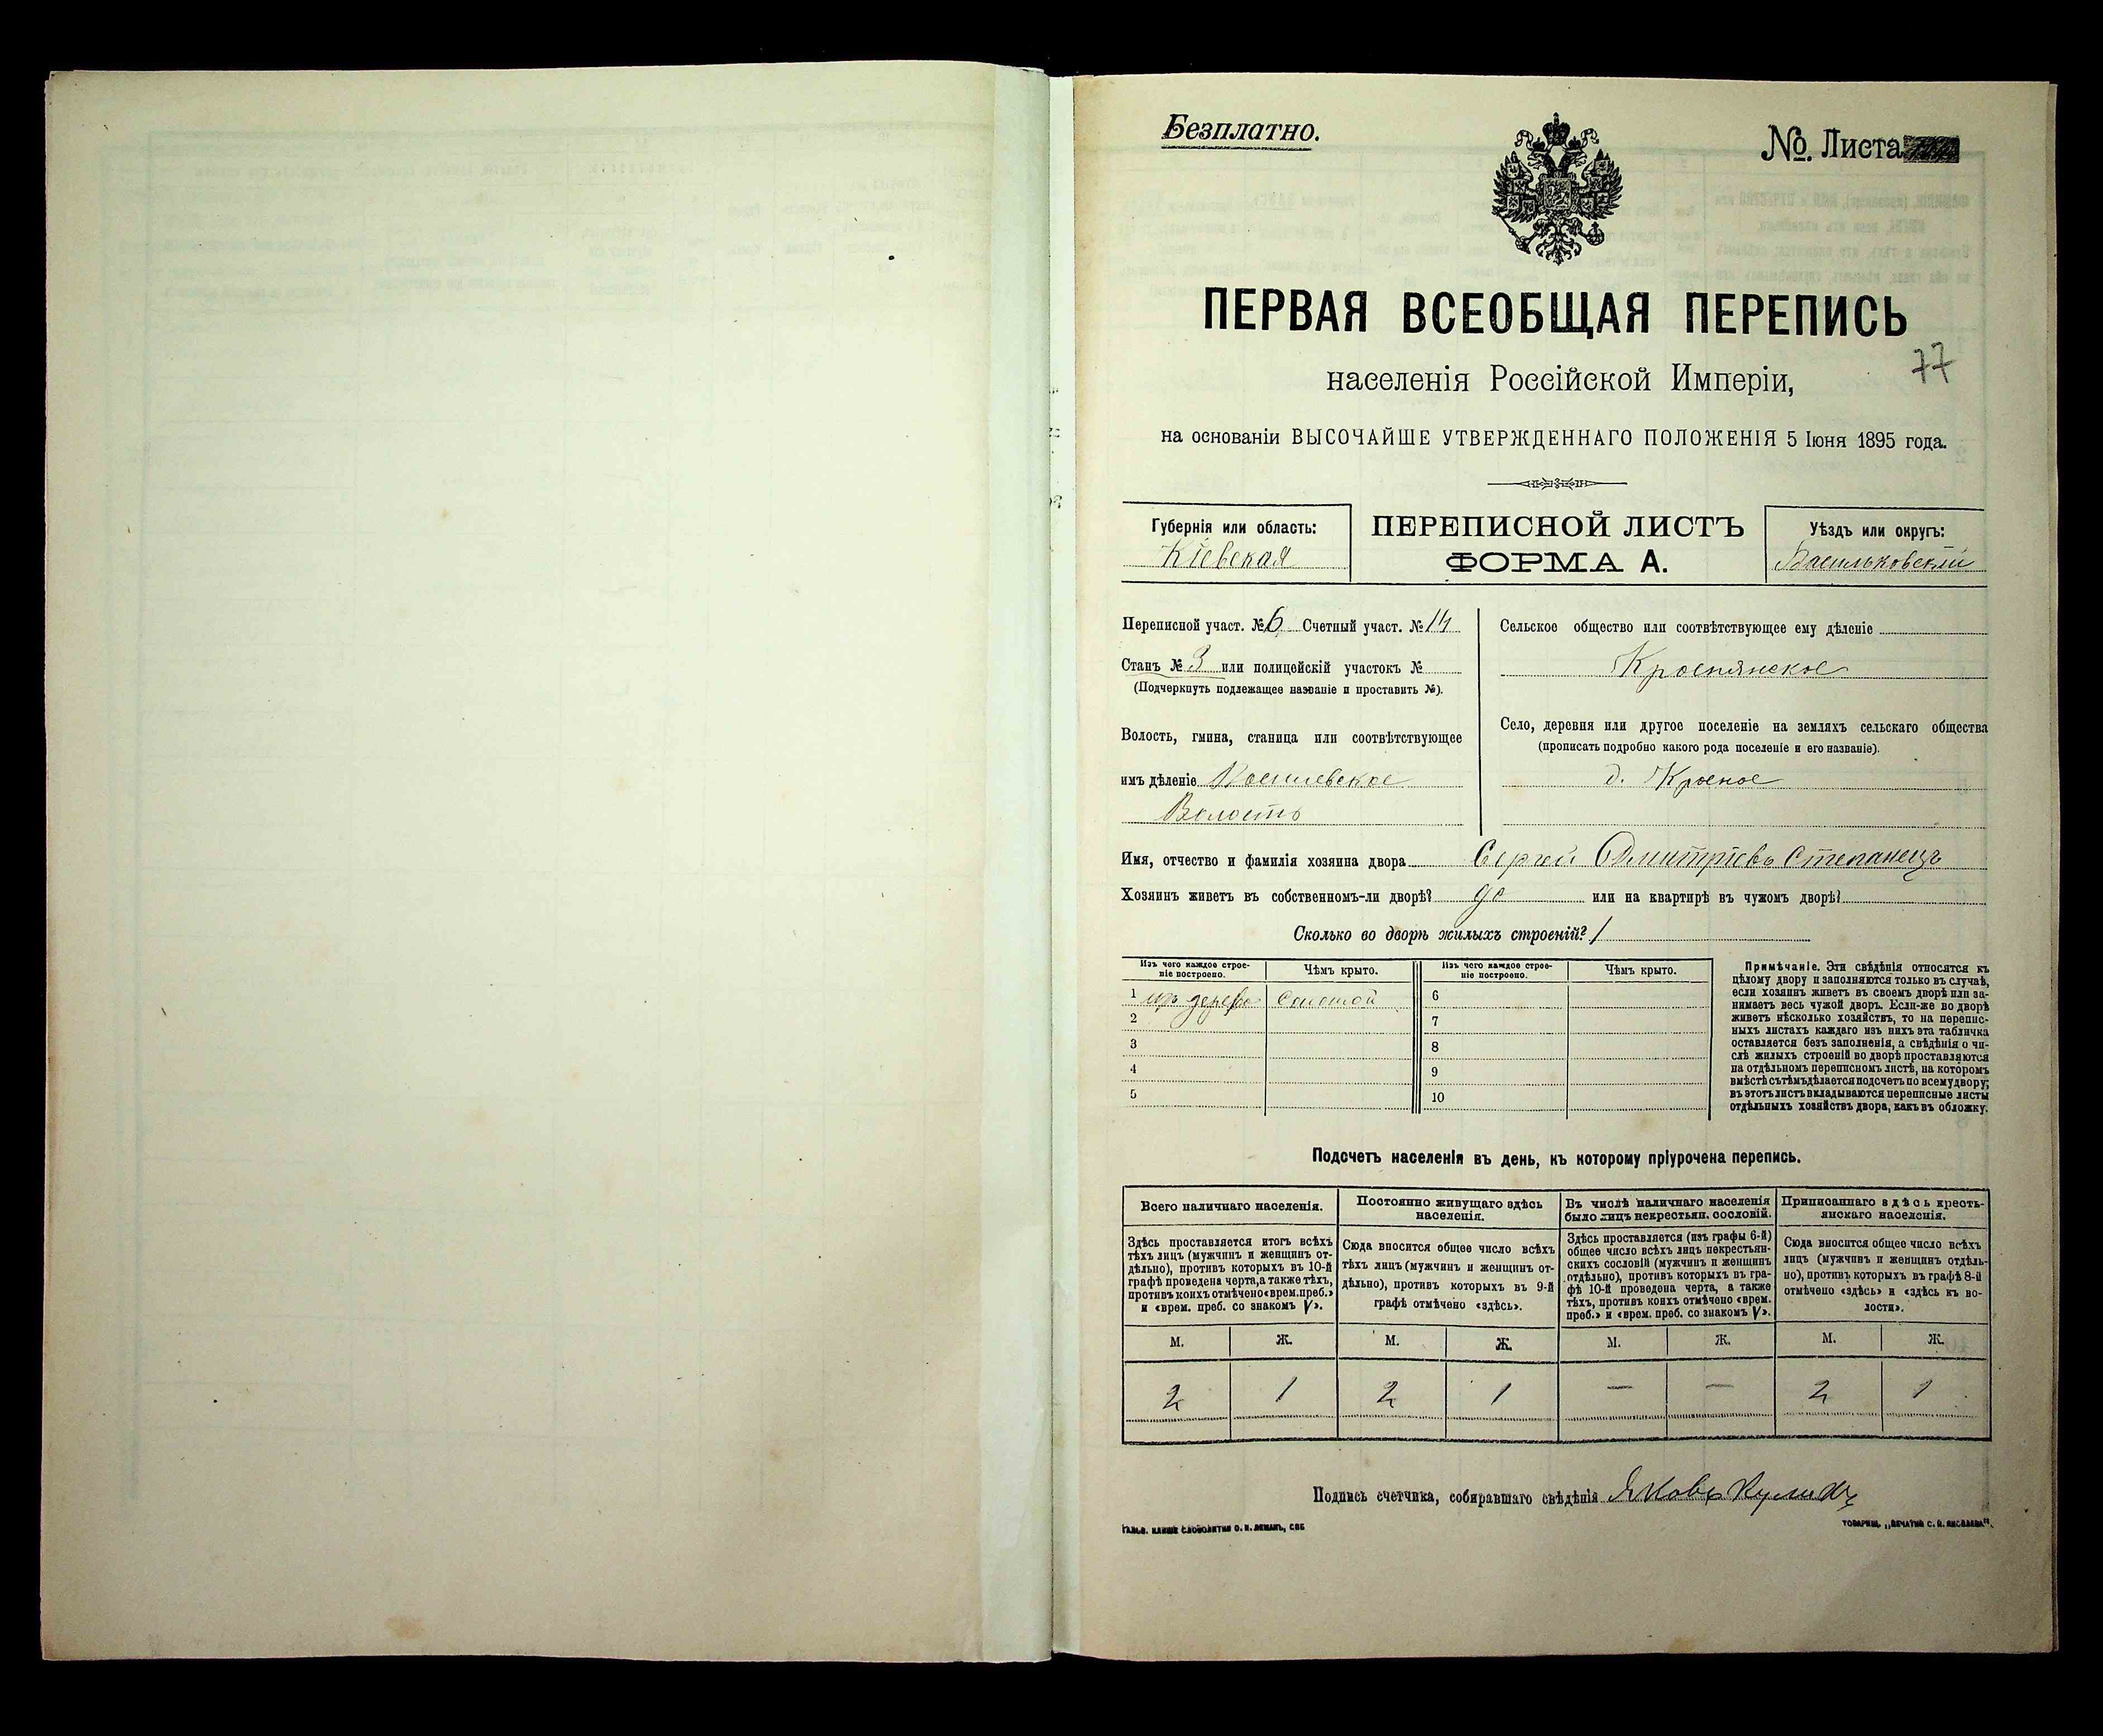 Безплатно.
№. Листа
ПЕРВАЯ ВСЕОБЩАЯ ПЕРЕПИСЬ
77
населенія Россійской Имперіи,
на основаніи ВЫСОЧАЙШЕ УТВЕРЖДЕННАГО ПОЛОЖЕНІЯ 5 Іюня 1895 года.
Губернія или область:
Кіевская
ПЕРЕПИСНОЙ ЛИСТЪ
ФОРМА А.
Уѣздъ или округъ:
Васильковскій
Переписной участ. № 6 Счетный участ. № 14
Станъ № 3 или полицейскій участокъ №
(Подчеркнуть подлежащее названіе и проставить №).
Волость, гмина, станица или соотвѣтствующее
имъ дѣленіе
Волость
Сельское общество или соотвѣтствующее ему дѣленіе
Кроснянское
Село, деревня или другое поселеніе на земляхъ сельскаго общества
(прописать подробно какого рода поселеніе и его названіе).
д. Кросное
Имя, отчество и фамилія хозяина двора Сергей Дмитріевъ Степанецъ
Хозяинъ живетъ въ собственномъ-ли дворѣ? да или на квартирѣ въ чужомъ дворѣ?
Сколько во дворѣ жилыхъ строеній? 1
Изъ чего каждое строе-
ніе построено.
Чѣмъ крыто.
Изъ чего каждое строе-
ніе построено.
Чѣмъ крыто.
1 изъ дерева соломой 6
2 7
3 8
4 9
5 10
Примѣчаніе. Эти свѣдѣнія относятся къ
цѣлому двору и заполняются только въ случаѣ,
если хозяинъ живетъ въ своемъ дворѣ или за-
нимаетъ весь чужой дворъ. Если-же во дворѣ
живетъ нѣсколько хозяйствъ, то на перепис-
ныхъ листахъ каждаго изъ нихъ эта табличка
оставляется безъ заполненія, а свѣдѣнія о чи-
слѣ жилыхъ строеній во дворѣ проставляются
на отдѣльномъ переписномъ листѣ, на которомъ
вмѣстѣ съ тѣмъ дѣлается подсчетъ по всему двору;
въ этотъ листъ вкладываются переписные листы
отдѣльныхъ хозяйствъ двора, какъ въ обложку.
Подсчетъ населенія въ день, къ которому пріурочена перепись.
Всего наличнаго населенія.
Здѣсь проставляется итогъ всѣхъ
тѣхъ лицъ (мужчинъ и женщинъ от-
дѣльно), противъ которыхъ въ 10-й
графѣ проведена черта, а также тѣхъ,
противъ коихъ отмѣчено «врем. преб.»
и «врем. преб. со знакомъ V».
Постоянно живущаго здѣсь
населенія.
Сюда вносится общее число всѣхъ
тѣхъ лицъ (мужчинъ и женщинъ от-
дѣльно), противъ которыхъ въ 9-й
графѣ отмѣчено «здѣсь».
Въ числѣ наличнаго населенія
было лицъ некрестьян. сословій.
Здѣсь проставляется (изъ графы 6-й)
общее число всѣхъ лицъ некрестьян-
скихъ сословій (мужчинъ и женщинъ
отдѣльно), противъ которыхъ въ гра-
фѣ 10-й проведена черта, а также
тѣхъ, противъ коихъ отмѣчено «врем.
преб.» и «врем. преб. со знакомъ V».
Приписаннаго здѣсь кресть-
янскаго населенія.
Сюда вносится общее число всѣхъ
лицъ (мужчинъ и женщинъ отдѣль-
но), противъ которыхъ въ графѣ 8-й
отмѣчено «здѣсь» и «здѣсь къ во-
лости».
М. Ж. М. Ж. М. Ж. М. Ж.
2 1 2 1 — — 2 1
Подпись счетчика, собиравшаго свѣдѣнія Яковъ